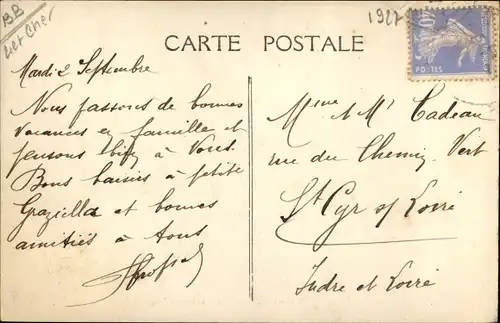 BB
Cher
1927
CARTE POSTALE
40
POSTES
Mardi 2 Septembre
Nous passons de bonnes
vacances en famille et
pensons bien à Vous.
Bons baisers à petite
Graziella et bonnes
amitiés à tous
Mme et Mr Cadeau
rue du Chemin Vert
St Cyr s/ Loire
Indre et Loire